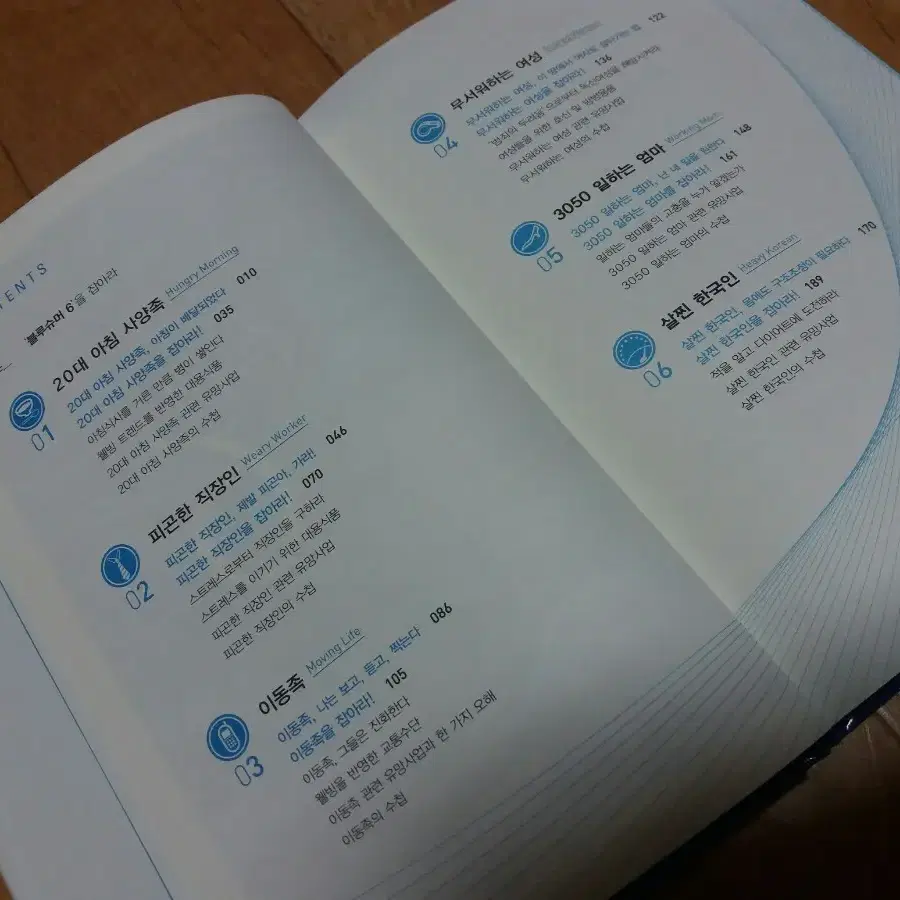 TENTS
블루슈머 6을 잡아라
01
20대 아침 사양족 Hungry Morning
20대 아침 사양족, 아침이 배달되었다 010
20대 아침 사양족을 잡아라! 035
아침식사를 거른 만큼 병이 쌓인다
웰빙 트렌드를 반영한 대용식품
20대 아침 사양족 관련 유망사업
20대 아침 사양족의 수첩
02
피곤한 직장인 Weary Worker
피곤한 직장인, 제발 피곤아, 가라! 046
피곤한 직장인을 잡아라! 070
스트레스로부터 직장인을 구하라
스트레스를 이기기 위한 대용식품
피곤한 직장인 관련 유망사업
피곤한 직장인의 수첩
03
이동족 Moving Life
이동족, 나는 보고, 듣고, 찍는다 086
이동족을 잡아라! 105
이동족, 그들은 진화한다
웰빙을 반영한 교통수단
이동족 관련 유망사업과 한 가지 오해
이동족의 수첩
04
무서워하는 여성
무서워하는 여성, 이 땅에서 여자로 살아가는 법 122
무서워하는 여성을 잡아라! 136
'범죄의 두려움'으로부터 독신여성을 해방시켜라
여성들을 위한 호신 및 방범용품
무서워하는 여성 관련 유망사업
무서워하는 여성의 수첩
05
3050 일하는 엄마 Working Mom
3050 일하는 엄마, 난 내 일을 원한다 148
3050 일하는 엄마를 잡아라! 161
일하는 엄마들의 고충을 누가 알겠는가
3050 일하는 엄마 관련 유망사업
3050 일하는 엄마의 수첩
06
살찐 한국인 Heavy Korean
살찐 한국인, 몸에도 구조조정이 필요하다 170
살찐 한국인을 잡아라! 189
적을 알고 다이어트에 도전하라
살찐 한국인 관련 유망사업
살찐 한국인의 수첩